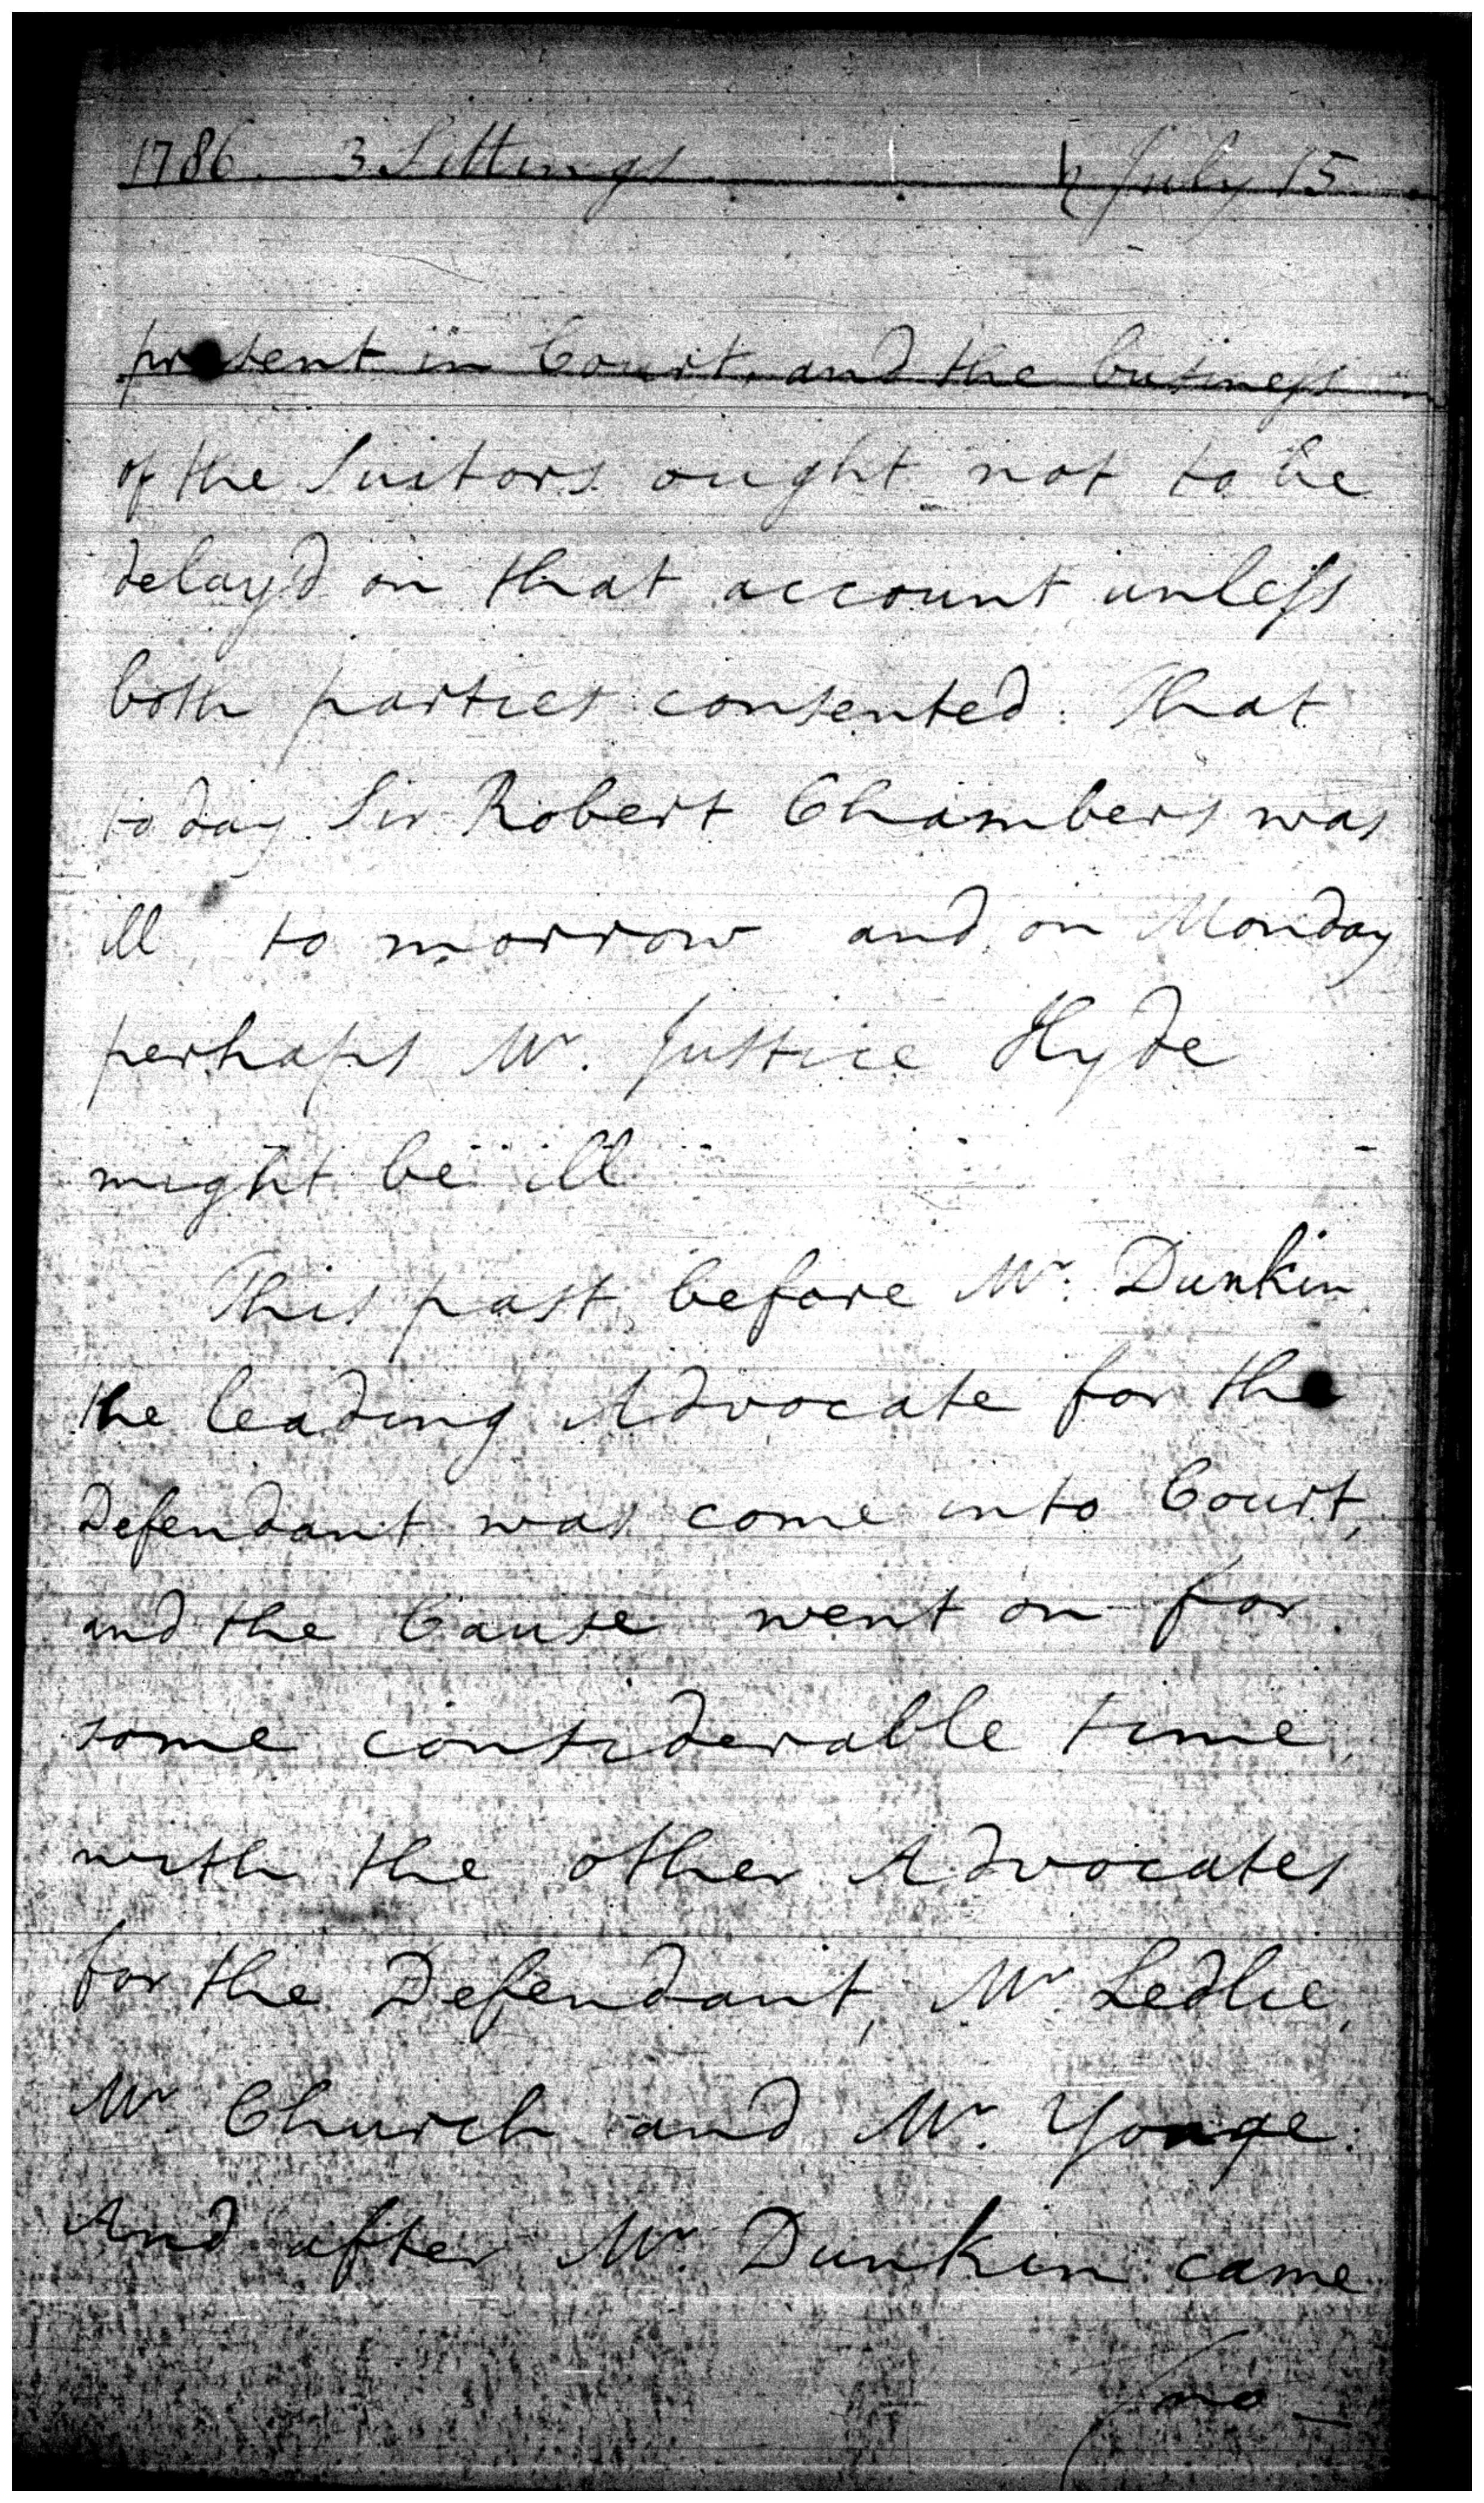 1786. 3 Sittings. ♄ July 15
present in Court, and the business
of the Suitors ought not to be
delay'd on that account unless
both parties consented. That
to day Sir Robert Chambers was
ill, to morrow and on Monday
perhaps Mr. Justice Hyde
might be ill
This past before Mr. Dunkin
the leading Advocate for the
Defendant was come into Court,
and the Cause went on for
some considerable time,
with the other Advocates
for the Defendant, Mr. Ledlie,
Mr. Church and Mr. Yonge.
And after Mr. Dunkin came
/no